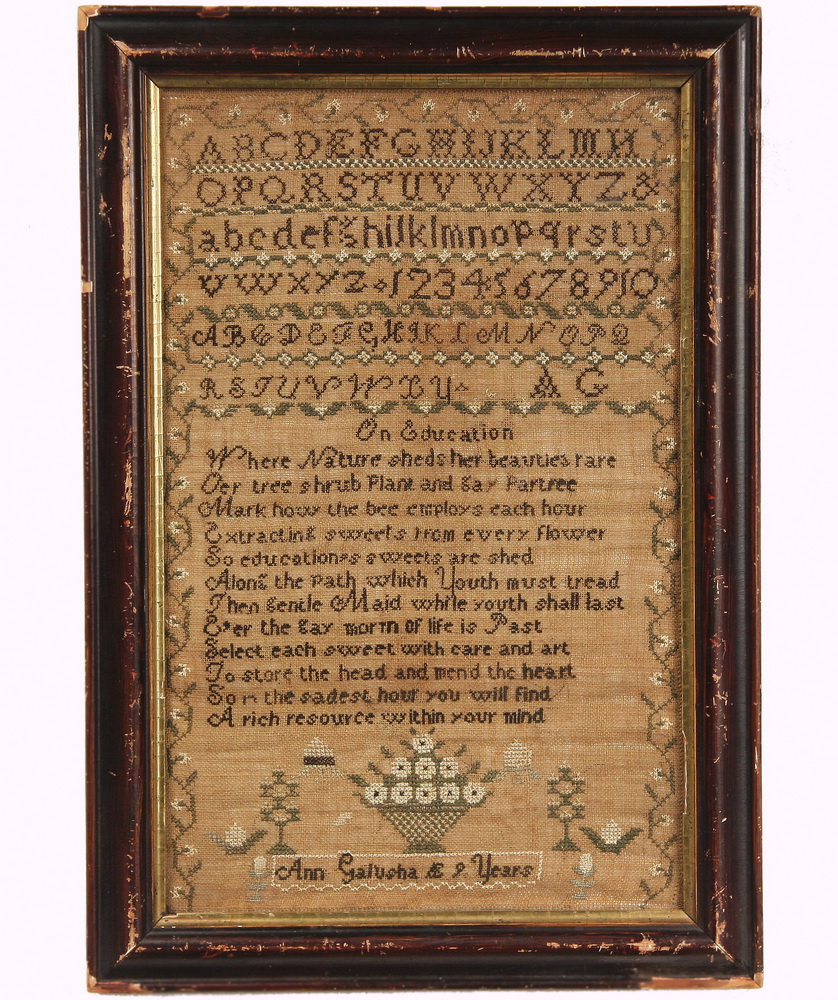 ABCDEFGHIJKLMN
OPQRSTUVWXYZ&
abcdefghijklmnopqrstu
vwxyz 12345678910
ABCDEFGHIKLMNOPQ
RSTUVWXY AG
On Education
Where Nature sheds her beauties rare
Oer tree shrub Plant and gay Partree
Mark how the bee employs each hour
Extracting sweets from every flower
So educations sweets are shed
Along the path which Youth must tread
Then gentle Maid while youth shall last
E'er the gay morm of life is Past
Select each sweet with care and art
To store the head and mend the heart
So in the sadest hour you will find
A rich resource within your mind
Ann Galusha Æ 9 Years